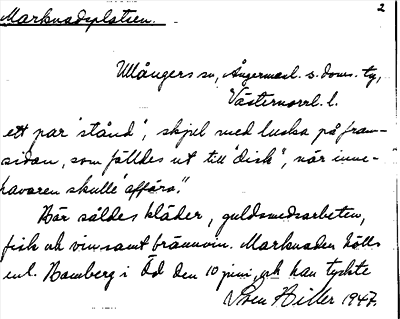 Marknadsplatsen.
2
Ullångers sn, Ångermanl. s. doms. ty,
Västernorrl. l.
ett par "stånd", skjul med lucka på fram-
sidan, som fälldes ut till "disk", när inne-
havaren skulle "affära".
Här såldes kläder, guldsmedsarbeten,
fisk och vin samt brännvin. Marknaden hölls
enl. Bamberg i Öd den 10 juni, och han tyckte
Sven Hiller 1947.